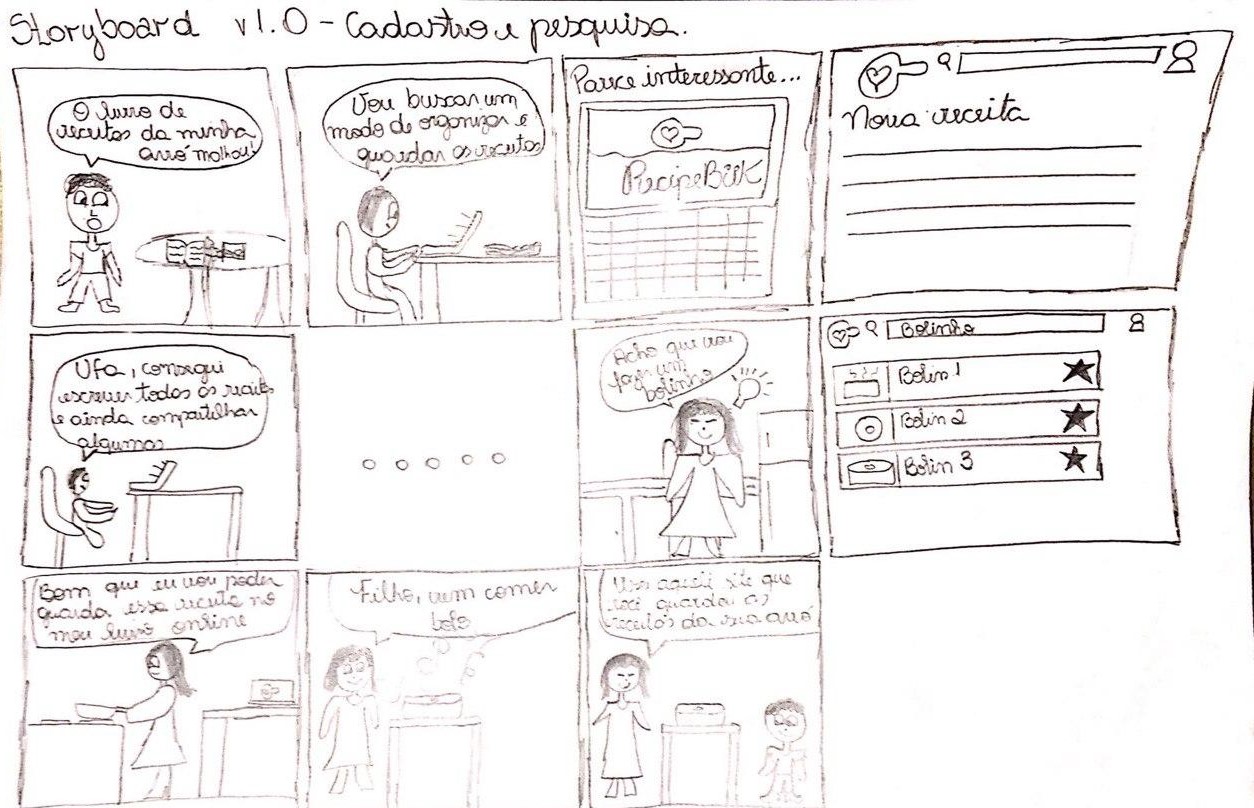 Storyboard v1.0 - Cadastro e pesquisa.
O livro de
receitas da minha
avó molhou!
Vou buscar um
modo de organizar e
guardar as receitas
Parece interessante...
RecipeBük
Nova receita
Ufa, consegui
escrever todas as receitas
e ainda compartilhar
algumas
Acho que vou
fazer um
bolinho
Bolinho
Bolin 1
Bolin 2
Bolin 3
Bom que eu vou poder
guarda essa receita no
meu livro online
Filho, vem comer
bolo
aquele site que
você guardou as
receitas da sua avó